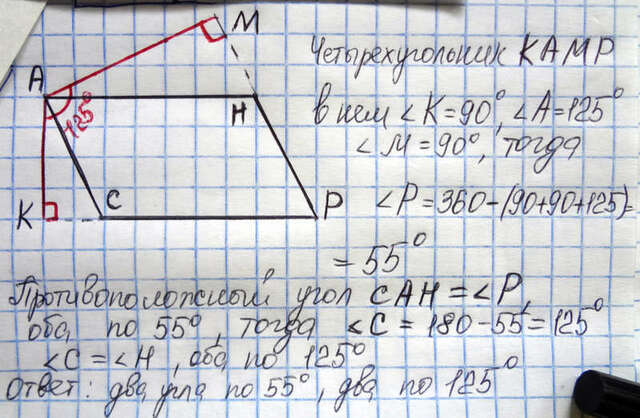 M
Четырехугольник KAMP
A
125°
H
в нем ∠K=90°, ∠A=125°
∠M=90°, тогда
K
C
P
∠P=360-(90+90+125)=
=55°
Противоположный угол CAH=∠P,
оба по 55°, тогда ∠C=180-55=125°
∠C=∠H, оба по 125°
Ответ: два угла по 55°, два по 125°